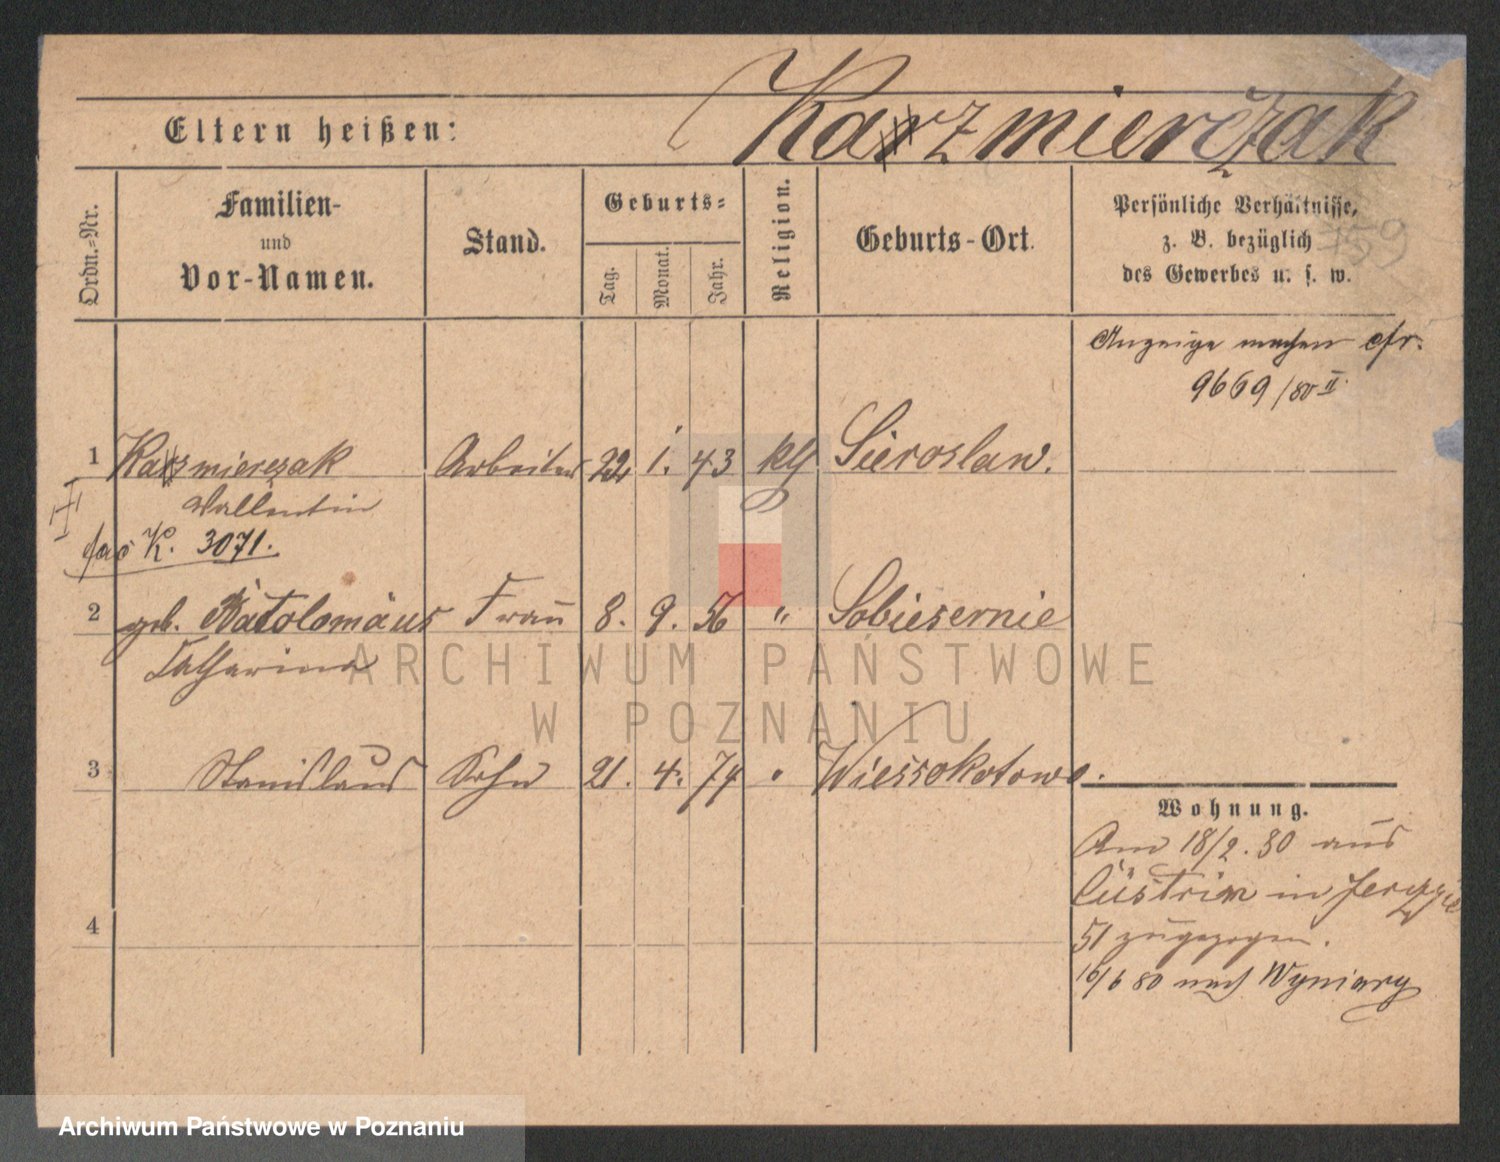 Kazmierczak
Eltern heißen:
Ordn.-Nr.
Familien-
und
Vor-Namen.
Stand.
Geburts-
Tag.
Monat.
Jahr.
Religion.
Geburts-Ort.
Persönliche Verhältnisse,
z. B. bezüglich
des Gewerbes u. s. w.
Anzeige machen cfr.
9669/80 II
1 Kazmierczak Arbeiter 22. 1. 43 kth Sieroslaw.
Vallentin
K. 3071.
2 geb. Batolomäus Frau 8. 9. 56 " Sobiesernie
Catharina
3 Stanislaus Sohn 21. 4. 74 " Wiessokotowo.
Wohnung.
Am 18/2. 80 aus
Cüstrin in Jerzyce
51 zugezogen.
16/6 80 nach Wyniary
4
ARCHIWUM PAŃSTWOWE
W POZNANIU
Archiwum Państwowe w Poznaniu